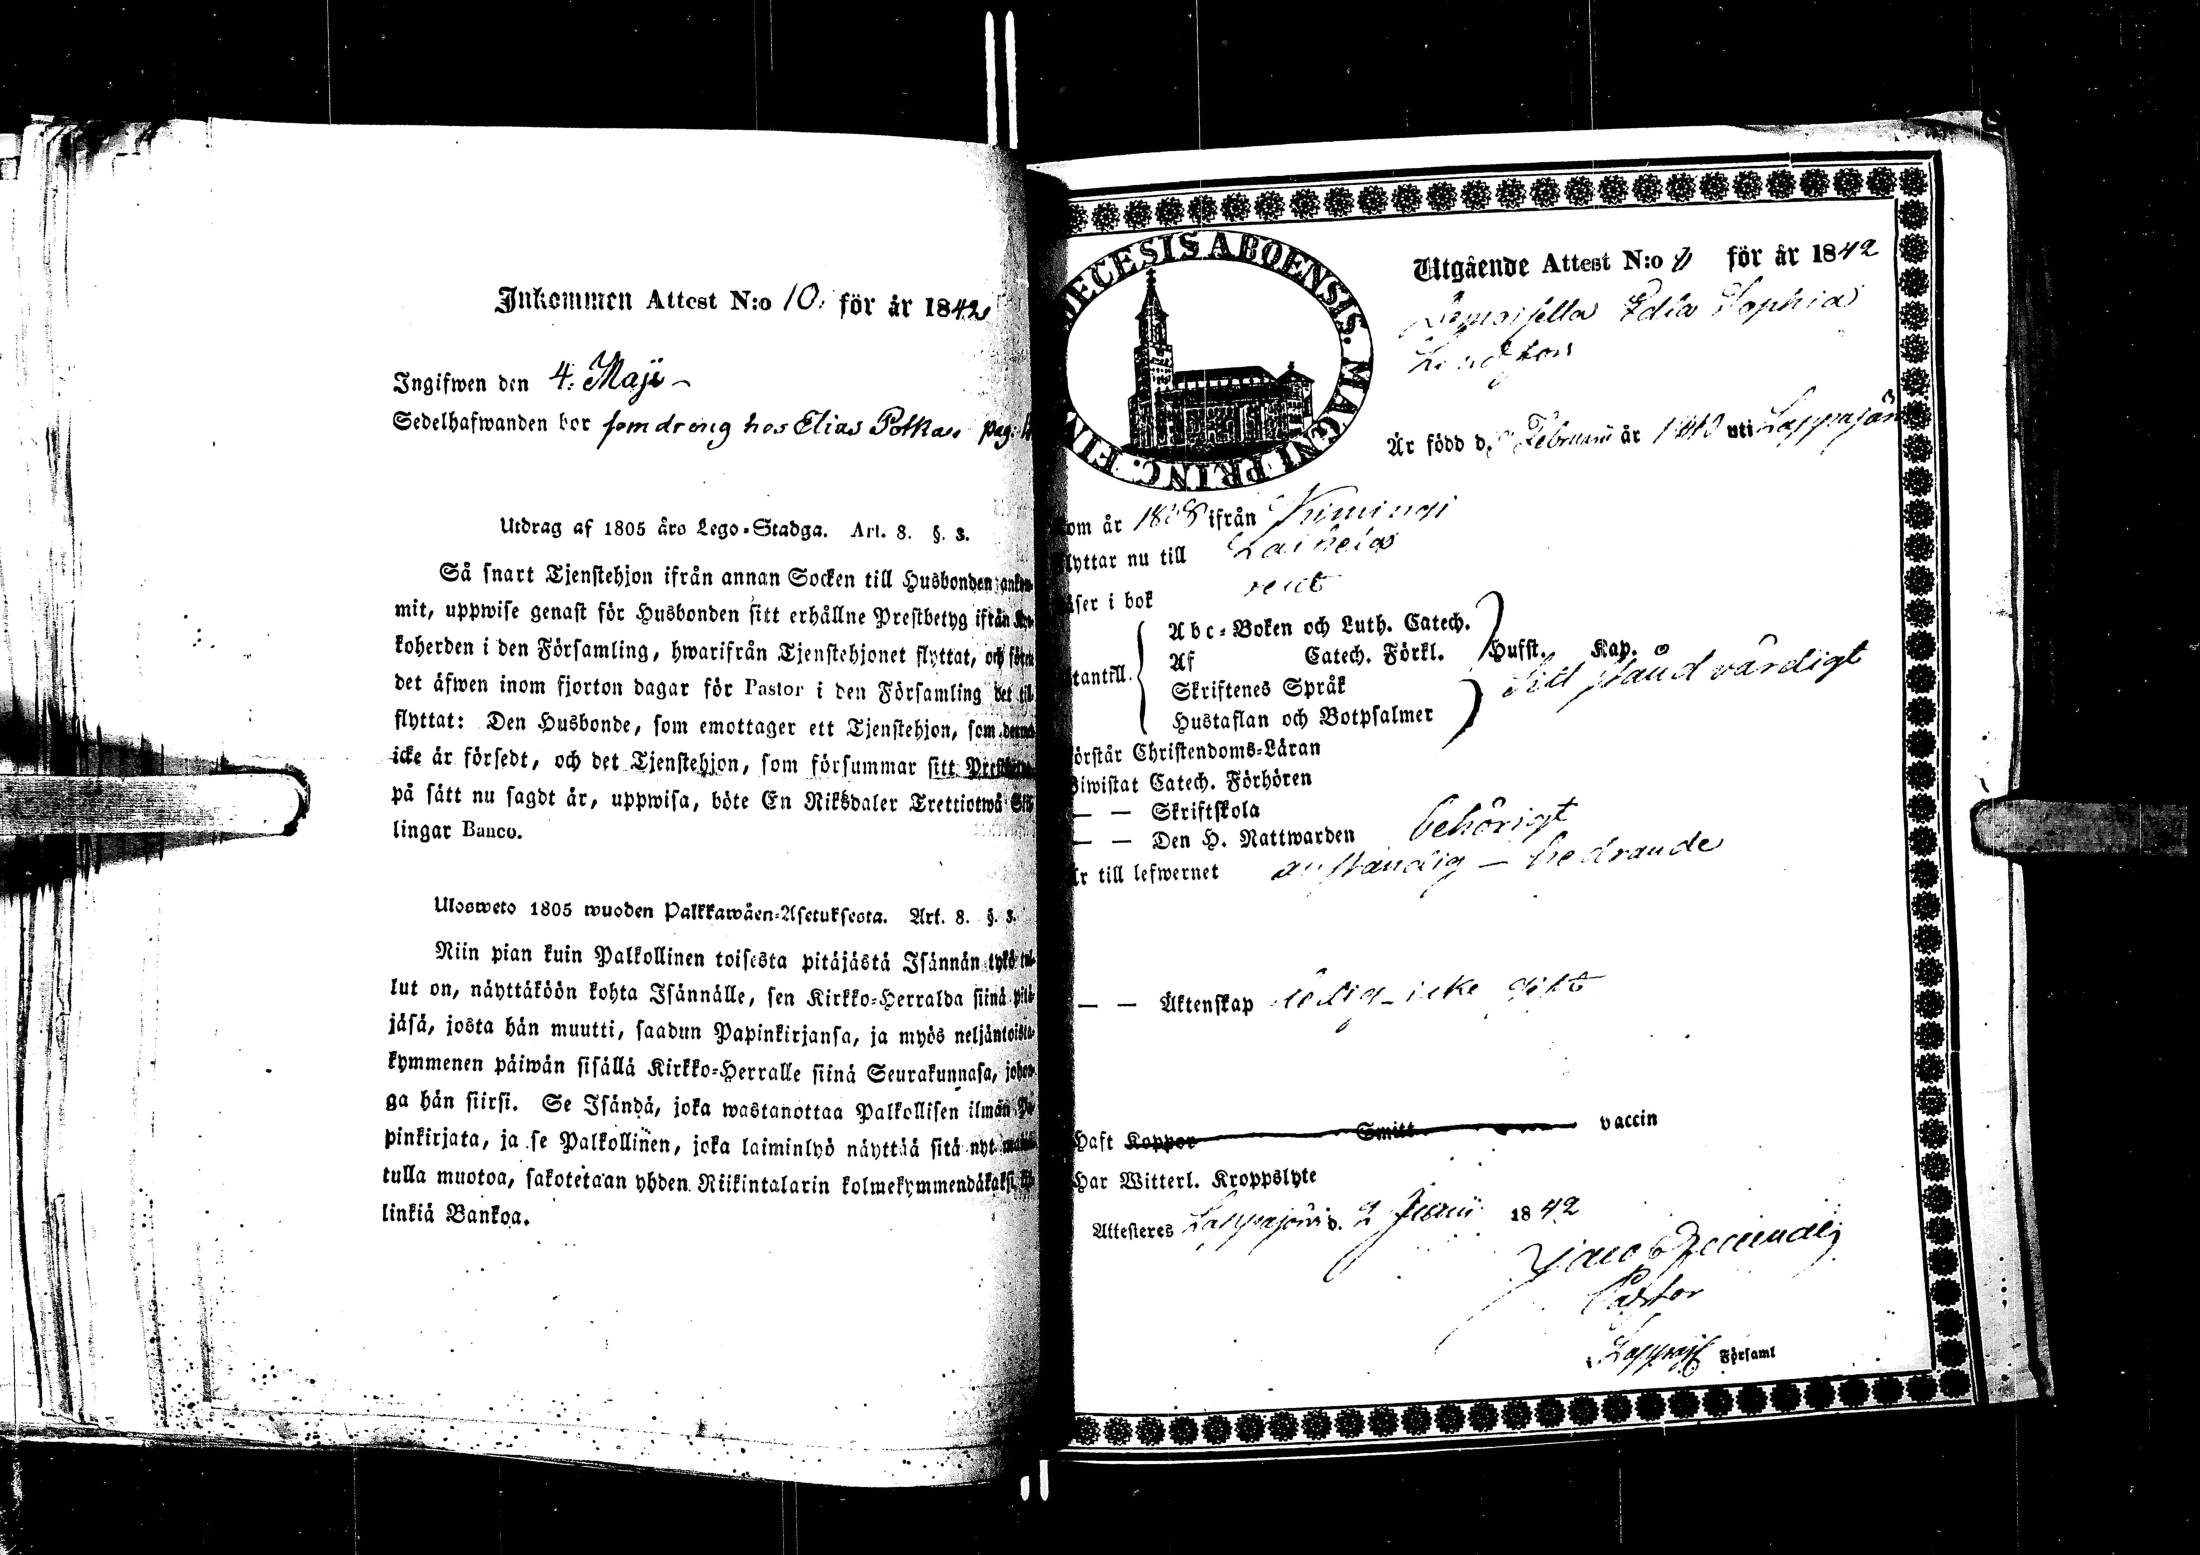 Inkommen Attest N:o 10. för år 1842
Ingifwen den 4. Maji
Sedelhafwanden bor som dräng hos Elias Potka pag.
Utdrag af 1805 års Lego-Stadga. Art. 8. §. 3.
Så snart Tjenstehjon ifrån annan Socken till Husbonden ankom-
mit, uppwise genast för Husbonden sitt erhållne Prestbetyg ifrån Kyr-
koherden i den Församling, hwarifrån Tjenstehjonet flyttat, och förete
det äfwen inom fjorton dagar för Pastor i den Församling det till-
flyttat: Den Husbonde, som emottager ett Tjenstehjon, som dermed
icke är försedt, och det Tjenstehjon, som försummar sitt Prestbetyg
på sätt nu sagdt är, uppwisa, böte En Riksdaler Trettiotwå Skil-
lingar Banco.
Ulosweto 1805 wuoden Palkkawäen-Asetuksesta. Art. 8. §. 3.
Niin pian kuin Palkollinen toisesta pitäjästä Isännän tykö tul-
lut on, näyttäköön kohta Isännälle, sen Kirkko-Herralda siinä pitä-
jäsä, josta hän muutti, saadun Papinkirjansa, ja myös neljäntoista-
kymmenen päiwän sisällä Kirkko-Herralle siinä Seurakunnasa, johon-
ga hän siirsi. Se Isändä, joka wastanottaa Palkollisen ilman Pa-
pinkirjata, ja se Palkollinen, joka laiminlyö näyttää sitä nyt
tulla muotoa, sakotetaan yhden Riikintalarin kolmekymmendäkaksi kil-
linkiä Bankoa.
DIOECESIS ABOENSIS. MAGNI PRINC. FIN
Utgående Attest N:o för år 1842
Demoisella Edla Sophia
Är född d. Februari år 1810 uti Lappajärvi
kom år 1838 ifrån Kimingi
flyttar nu till Laihela
läser i bok rent
Abc-Boken och Luth. Catech.
Af Catech. Förkl. Husst. Kap.
utantill. Skriftenes Språk sitt stånd värdigt
Hustaflan och Botpsalmer
förstår Christendoms-Läran
Biwistat Catech. Förhören
— — Skriftskola
— — Den H. Nattwarden behörigt
Är till lefwernet anständig – hedrande
— — Äktenskap ledig – icke gift
Haft Koppor Smitt vaccin
Har Witterl. Kroppslyte
Attesteres Lappajärvi d. 2 Junii 1842
Jacob
Pastor
Församl